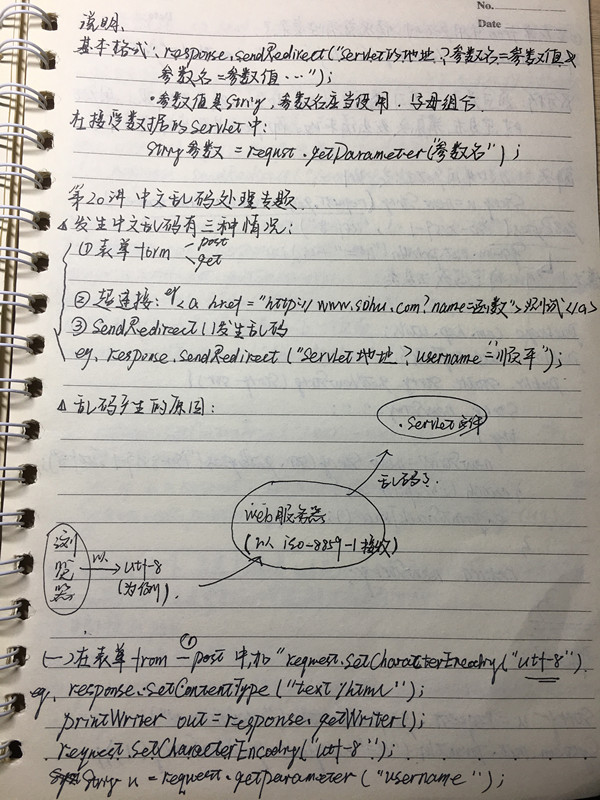 No.
Date
说明.
基本格式: response.sendRedirect("Servlet的地址?参数名=参数值&
参数名=参数值…");
·参数值是String, 参数名应当使用. 字母组合.
在接受数据的Servlet中:
String参数 = requst.getParameter("参数名");
第20讲 中文乱码处理专题.
△发生中文乱码有三种情况:
①表单form post
get
②超连接: eg <a href="http://www.sohu.com?name=函数">测试</a>
③SendRedirect()发生乱码
eg. response.sendRedirect("Servlet地址?username=顺平");
△乱码产生的原因:
.Servlet文件
乱码了.
web服务器
(以 iso-8859-1接收)
浏览器
以
utf-8
(为例).
(一)在表单from—post①中,加"request.setCharacterEncodry("utf-8")
eg. response.setContentType("text/html");
printWriter out=response.getWriter();
request.setCharacterEncodry("utf-8");
String u=request.getparameter("username");